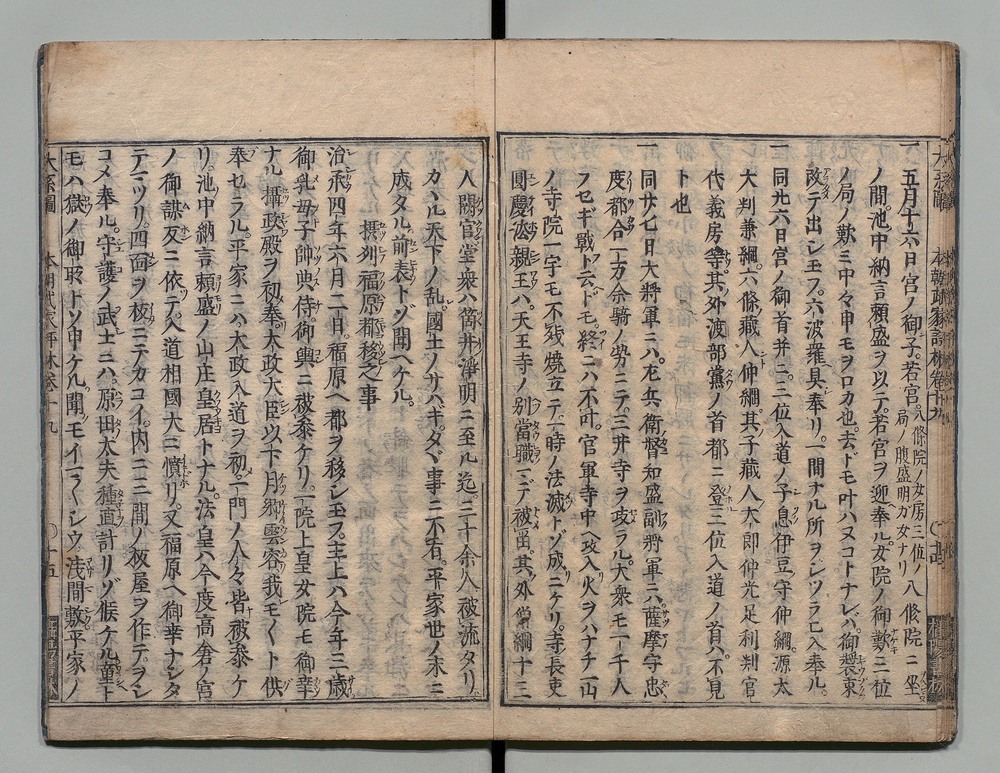 一 五月十六日宮ノ御子若宮八條院ノ女房三位ノ局ノ腹盛明ガ女ナリ八條院ニ坐
ノ間池中納言頼盛ヲ以テ若宮ヲ迎ヘ奉ル女院ノ御歎三位
ノ局ノ歎ミ中々申モヲロカ也去ドモ叶ハヌコトナレバ御装束
改テ出シ玉フ六波羅具奉リ一間ナル所ヲシツラヒ入奉ル
一 同廿六日宮ノ御首并ニ三位入道ノ子息伊豆守仲綱源太
大判兼綱六條蔵人仲綱其子蔵人太郎仲光足利判官
代義房等其外渡部黨ノ首都ニ登三位入道ノ首ハ不見
ト也
一 同廿七日大將軍ニハ左兵衛督知盛副將軍ニハ薩摩守忠
度都合一万余騎ノ勢ニテ三井寺ヲ攻ラル大衆モ一千人
フセギ戦ト云ドモ終ニハ不叶官軍寺中ヘ攻入火ヲハナチ一山
ノ寺院一宇モ不残焼立テ一時ノ法滅トゾ成ニケリ寺長吏
圓慶法親王ハ天王寺ノ別當職ニテ被留其外僧綱十三
人闕官堂衆ハ筒井淨明ニ至ル迄三十余人被流タリ
カヽル天下ノ乱國土ノサハギタヾ事ニ不有平家世ノ末ニ
成タル前表トゾ聞ヘケル
摂州福原都移之事
治承四年六月二日福原ヘ都ヲ移シ玉フ主上ハ今年三歳
御乳母子帥典侍御輿ニ被参ケリ一院上皇女院モ御幸
ナル攝政殿ヲ初奉太政大臣以下月卿雲客我モ〱ト供
奉セラル平家ニハ太政入道ヲ初一門ノ人々皆被参ケ
リ池中納言頼盛ノ山庄皇居トナル法皇ハ今度高倉ノ宮
ノ御謀反ニ依テ入道相國大ニ憤リ又福原ヘ御幸ナシタ
テマツリ四面ヲ板ニテカコイ内ニ三間ノ板屋ヲ作テヲシ
コメ奉ル守護ノ武士ニハ原田太夫種直計リゾ候ケル童ド
モハ獄ノ御所トゾ申ケル聞モイマ〱シウ浅間敷平家ノ
大系圖 本朝武家評林巻十九 ○十五